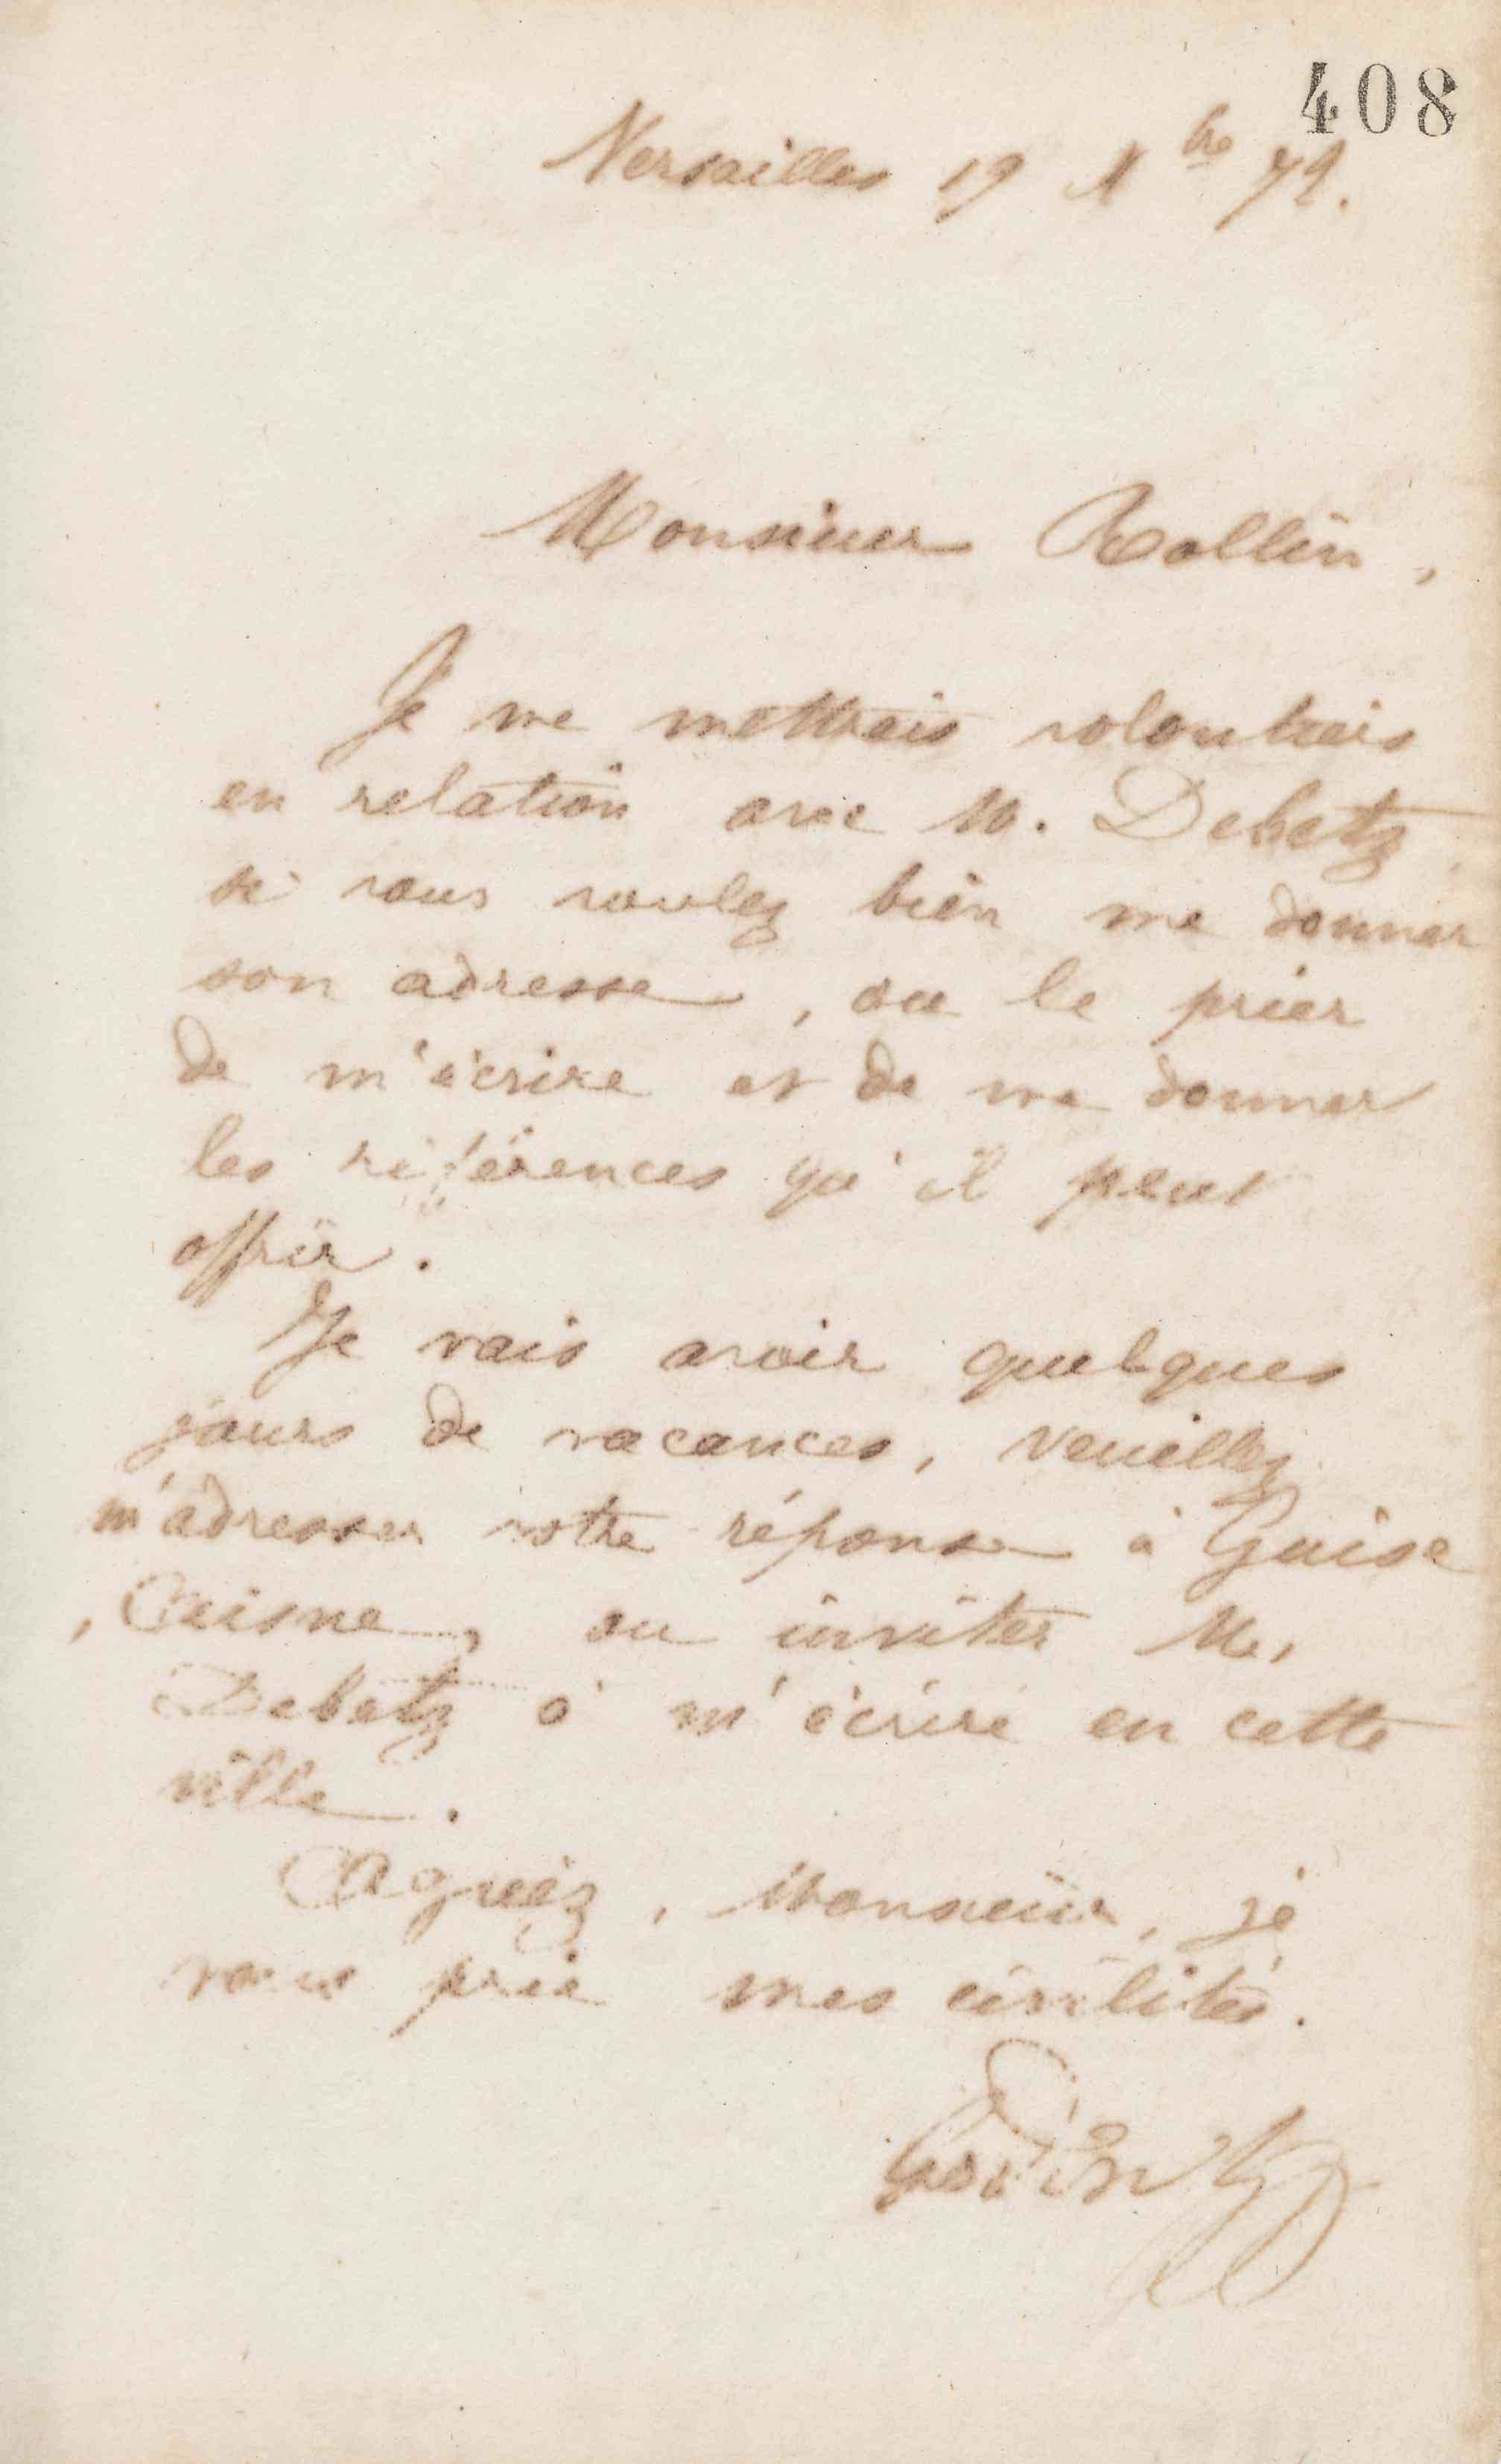 408
Versailles 19 Xbre 72.
Monsieur Rollin,
Je me mettrais volontiers
en relation avec M. Debatz
si vous voulez bien me donner
son adresse, ou le prier
de m'écrire et de me donner
les références qu'il peut
offrir.
Je vais avoir quelques
jours de vacances, veuillez
m'adresser votre réponse à Guise
, Aisne, ou inviter M.
Debatz à m'écrire en cette
ville.
Agréez, Monsieur, je
vous prie mes civilités.
Godin